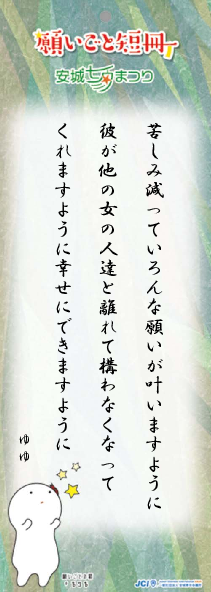 願いごと短冊
安城七夕まつり
苦しみ減っていろんな願いが叶いますように
彼が他の女の人達と離れて構わなくなって
くれますように幸せにできますように
ゆゆ
JCI